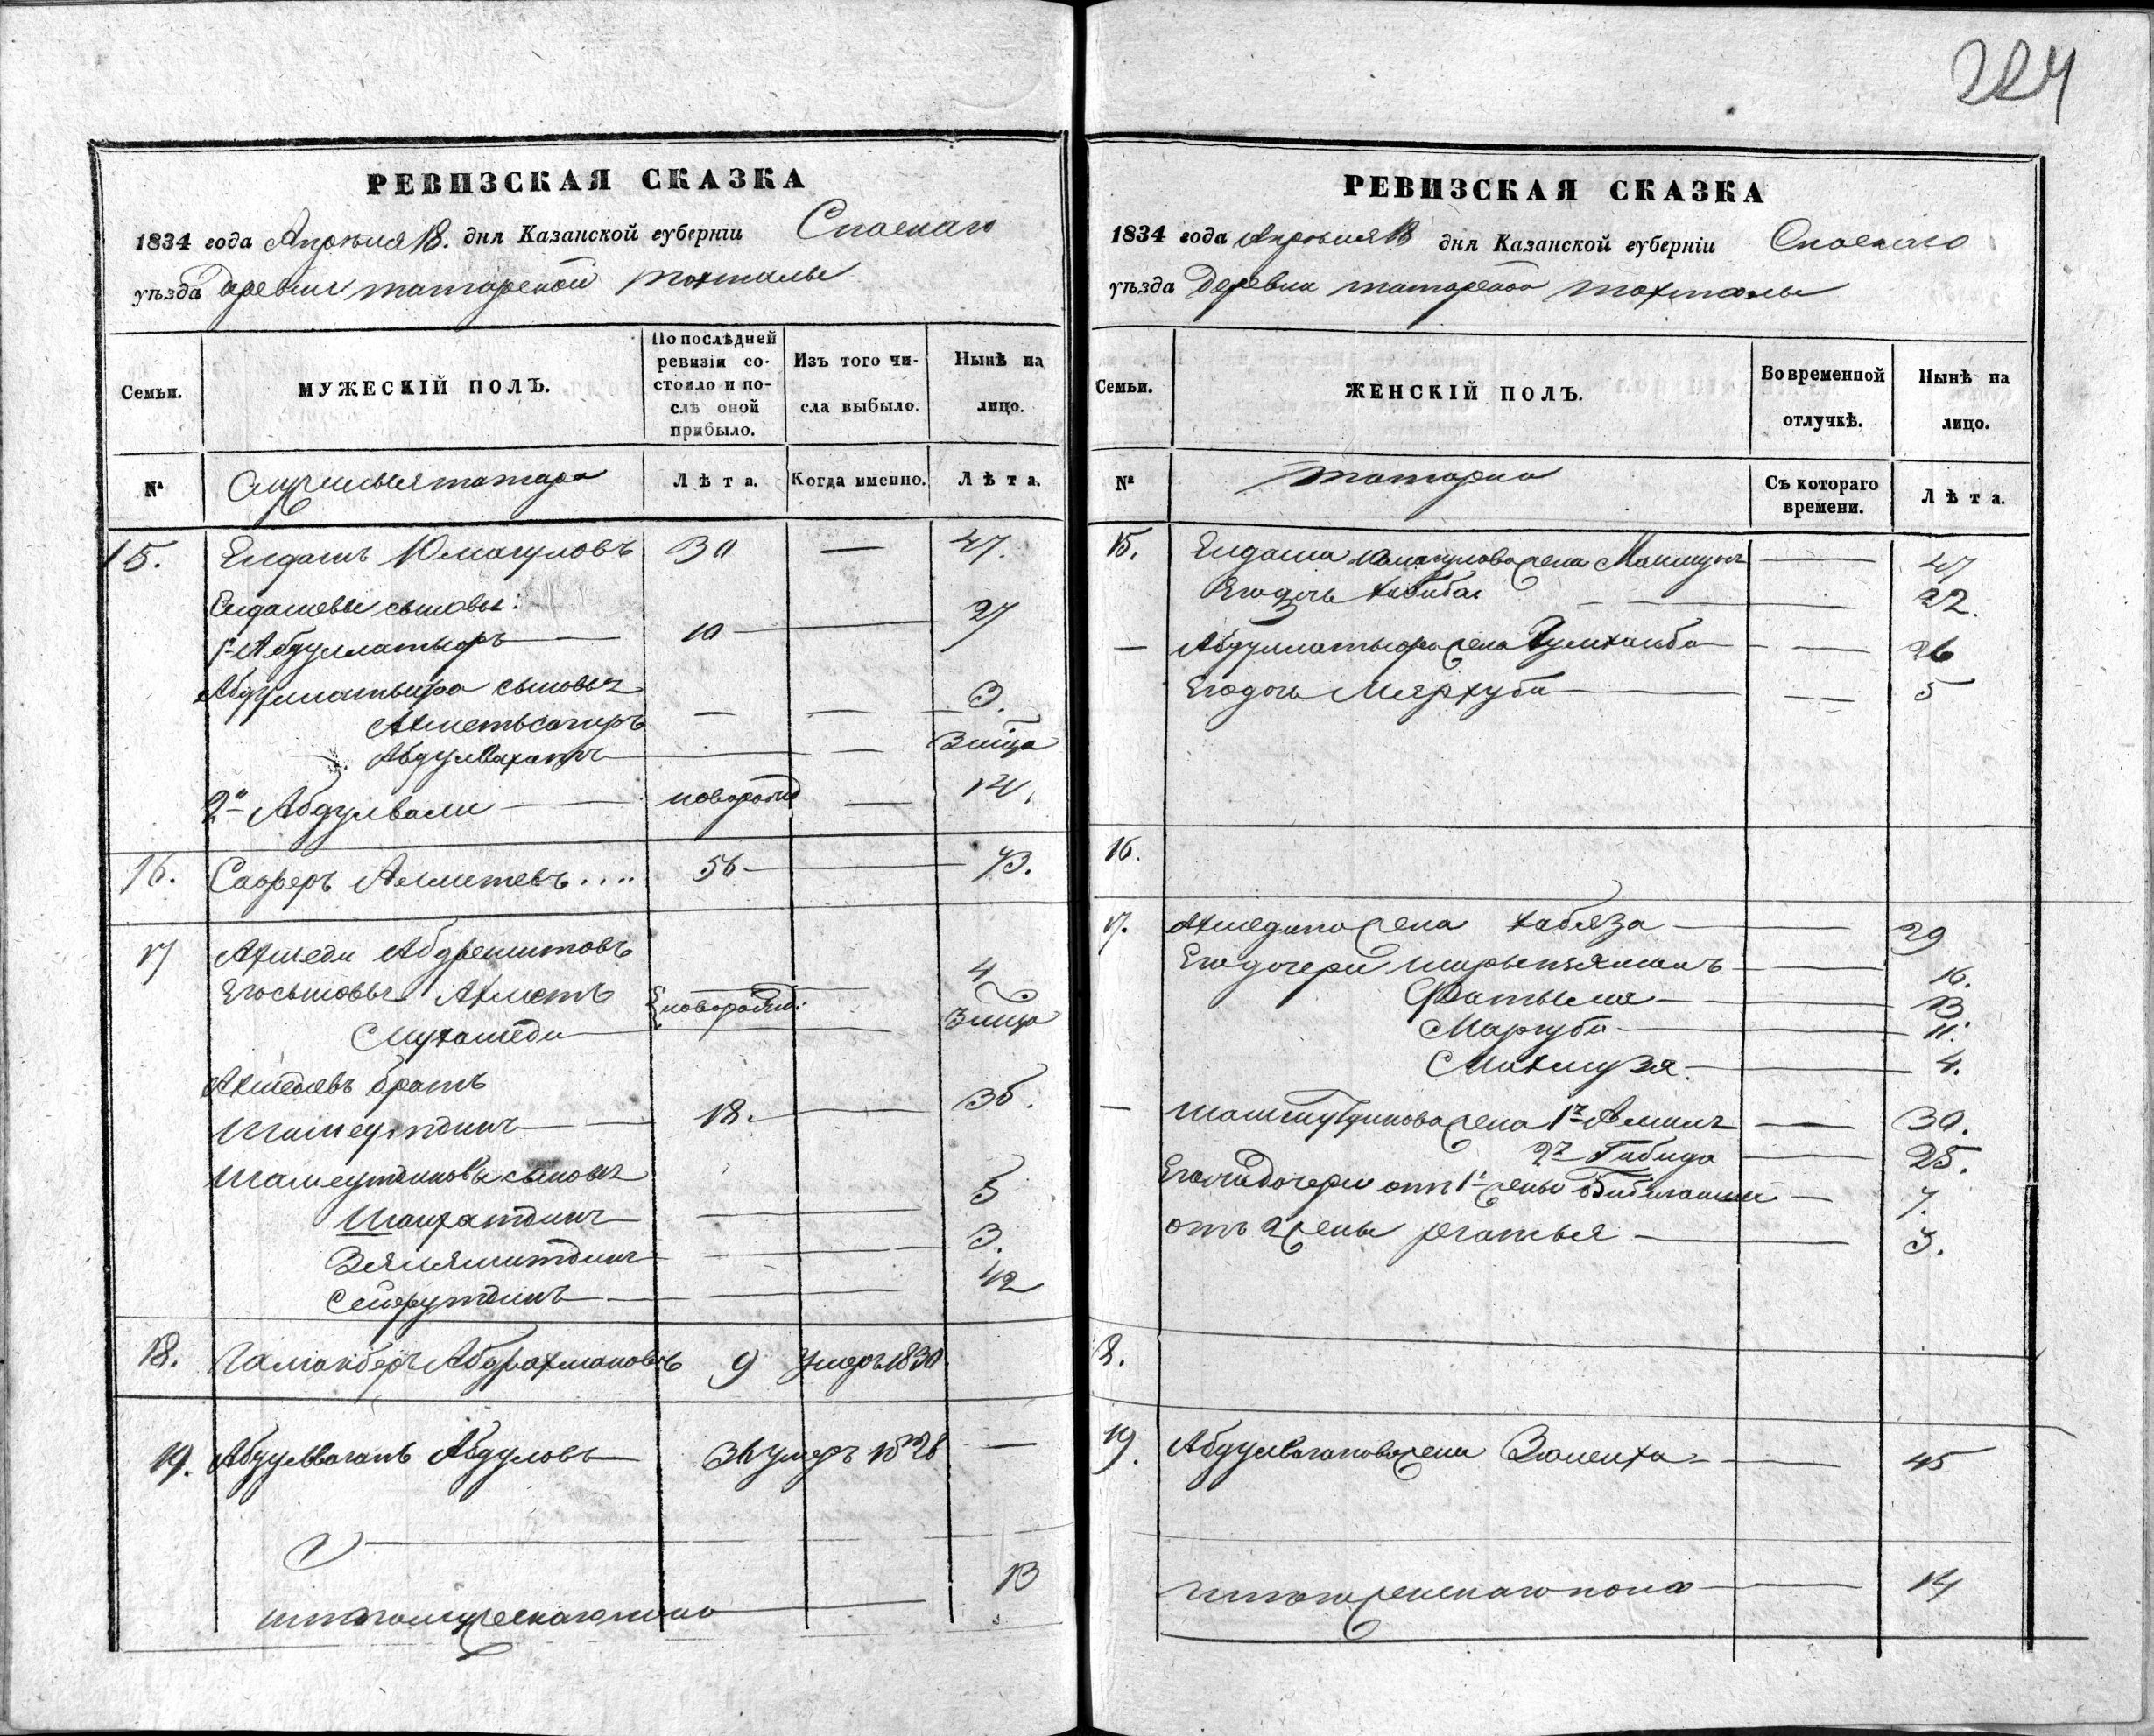 224
РЕВИЗСКАЯ СКАЗКА
1834 года Апрѣля 18. дня Казанской губерніи Спаскаго
уѣзда деревни татарской тохталы
Семьи.
МУЖЕСКІЙ ПОЛЪ.
По послѣдней ревизіи состояло и послѣ оной прибыло.
Изъ того числа выбыло.
Нынѣ на лицо.
№ Служилыя татара Лѣта. Когда именно. Лѣта.
15. Елдашъ Юмагуловъ 30 — 47.
Елдашевы сыновья:
1й Абдуллатыфъ — 10 — 27
Абдуллатыфа сыновья
Ахметьсагиръ — — 3.
Абдулвахапъ — — 3 мца
2й Абдулвали — новорожд — 14.
16. Сафаръ Алметевъ.... 56 — 73.
17 Ахмеди Абдрешитовъ
Его сыновья Ахметь новорожд: 4
Мухамеди — 3 мца
Ахмедіевъ братъ
Шамсутдинъ — 18. — 35.
Шамсутдиновы сыновья
Шарафтдинъ — — 5
Зяляшитдинъ — — 3.
Сейфутдинъ — — 1/2
18. Галіакберъ Абдрахмановъ 9 Умеръ 1830
19. Абдулвагапъ Абдуловъ 36 умеръ 1828 —
итого мужескаго пола — 13
РЕВИЗСКАЯ СКАЗКА
1834 года Апрѣля 18 дня Казанской губерніи Спаскаго
уѣзда деревни татарской тохталы
Семьи.
ЖЕНСКІЙ ПОЛЪ.
Во временной отлучкѣ.
Нынѣ на лицо.
№ татарки Съ котораго времени. Лѣта.
15. Елдаша Юмагулова жена — 47
Его дочь Хабиба — 22.
— Абдуллатыфа жена — 26
Его дочь Мярхуба — 5
16.
17. Ахмедіива жена Хабяза — 29
Его дочери — 16.
Фатыма — 13
Маргуба — 11.
Махмузя — 4.
— Шамсутдинова жена 1я — 30.
2я Габида — 25.
Его дочери отъ 1й жены — 7.
отъ 2 жены — 3.
18.
19. Абдулвагапова жена Зюлейха — 45
итого женскаго пола — 14